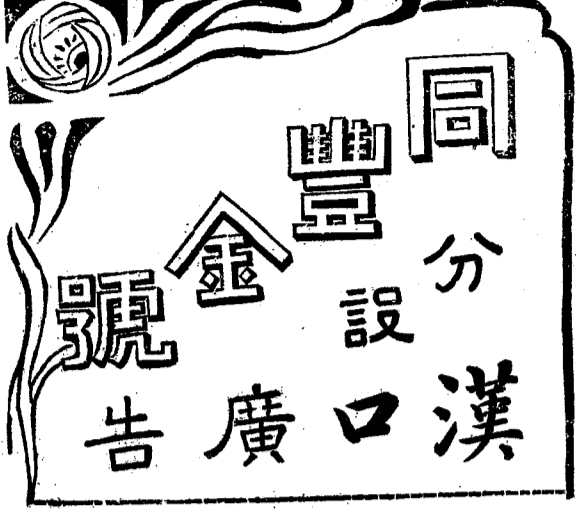 同豐金號
分設
漢口廣告